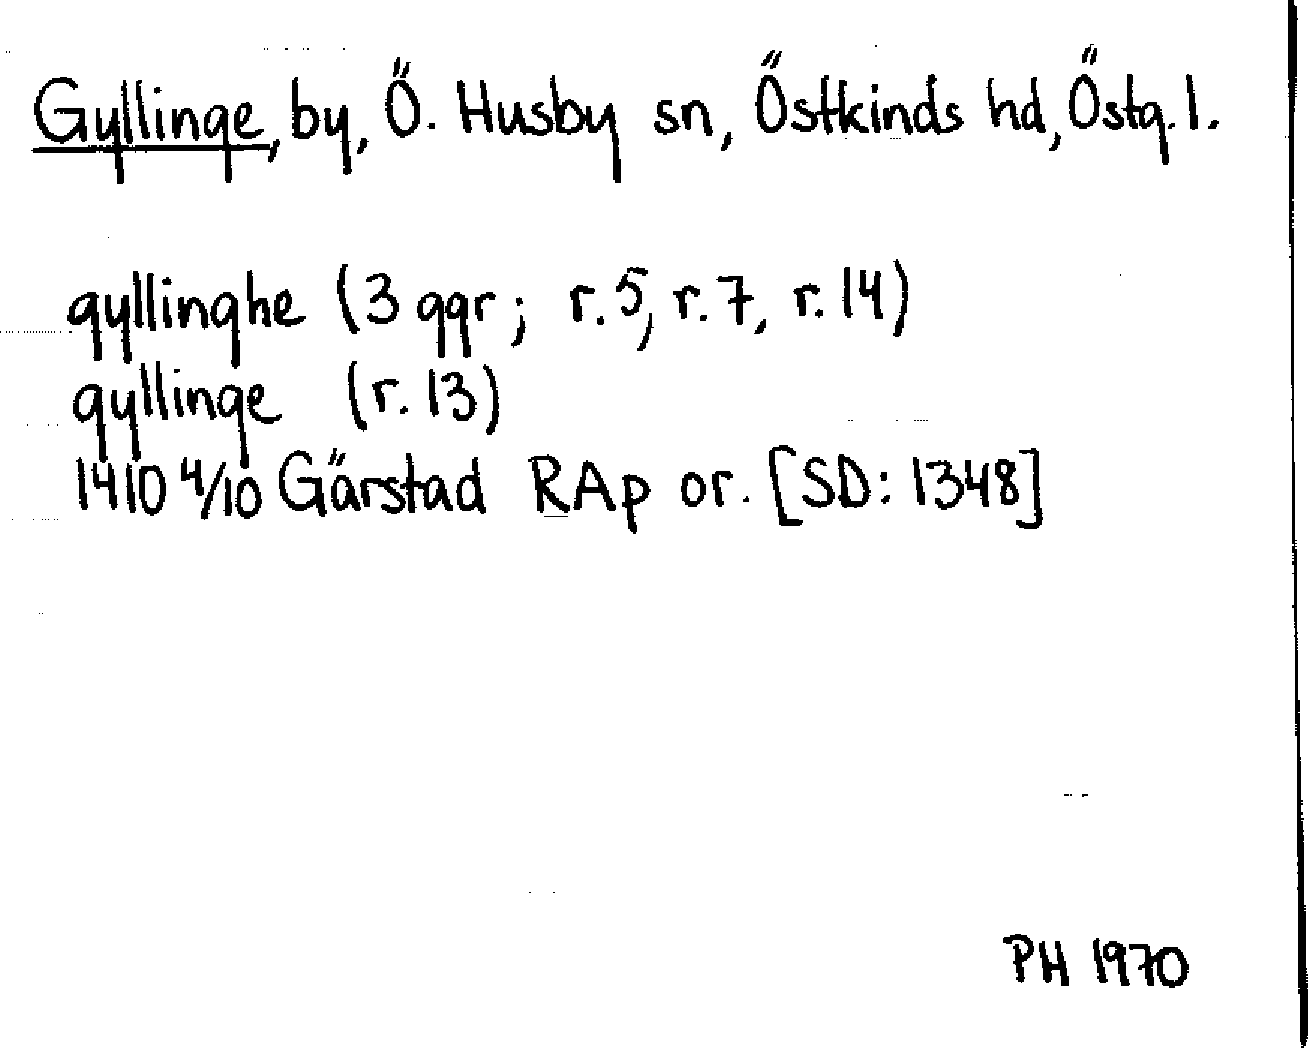 Gyllinge, by, Ö. Husby sn, Östkinds hd, Östg. l.
gyllinghe (3 ggr; r. 5, r. 7, r. 14)
gyllinge (r. 13)
1410 4/10 Gärstad RAp or. [SD: 1348]
PH 1970